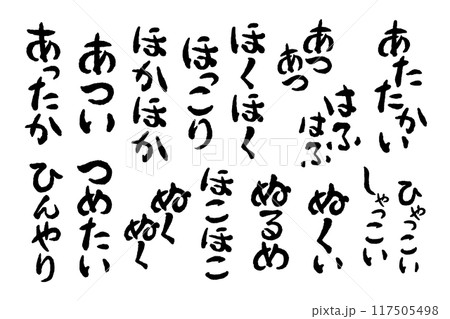 あたたかい
あつ
あつ
はふ
はふ
ほくほく
ほっこり
ほかほか
あつい
あったか
ひゃっこい
しゃっこい
ぬくい
ぬるめ
ほこほこ
ぬく
ぬく
つめたい
ひんやり
117505498